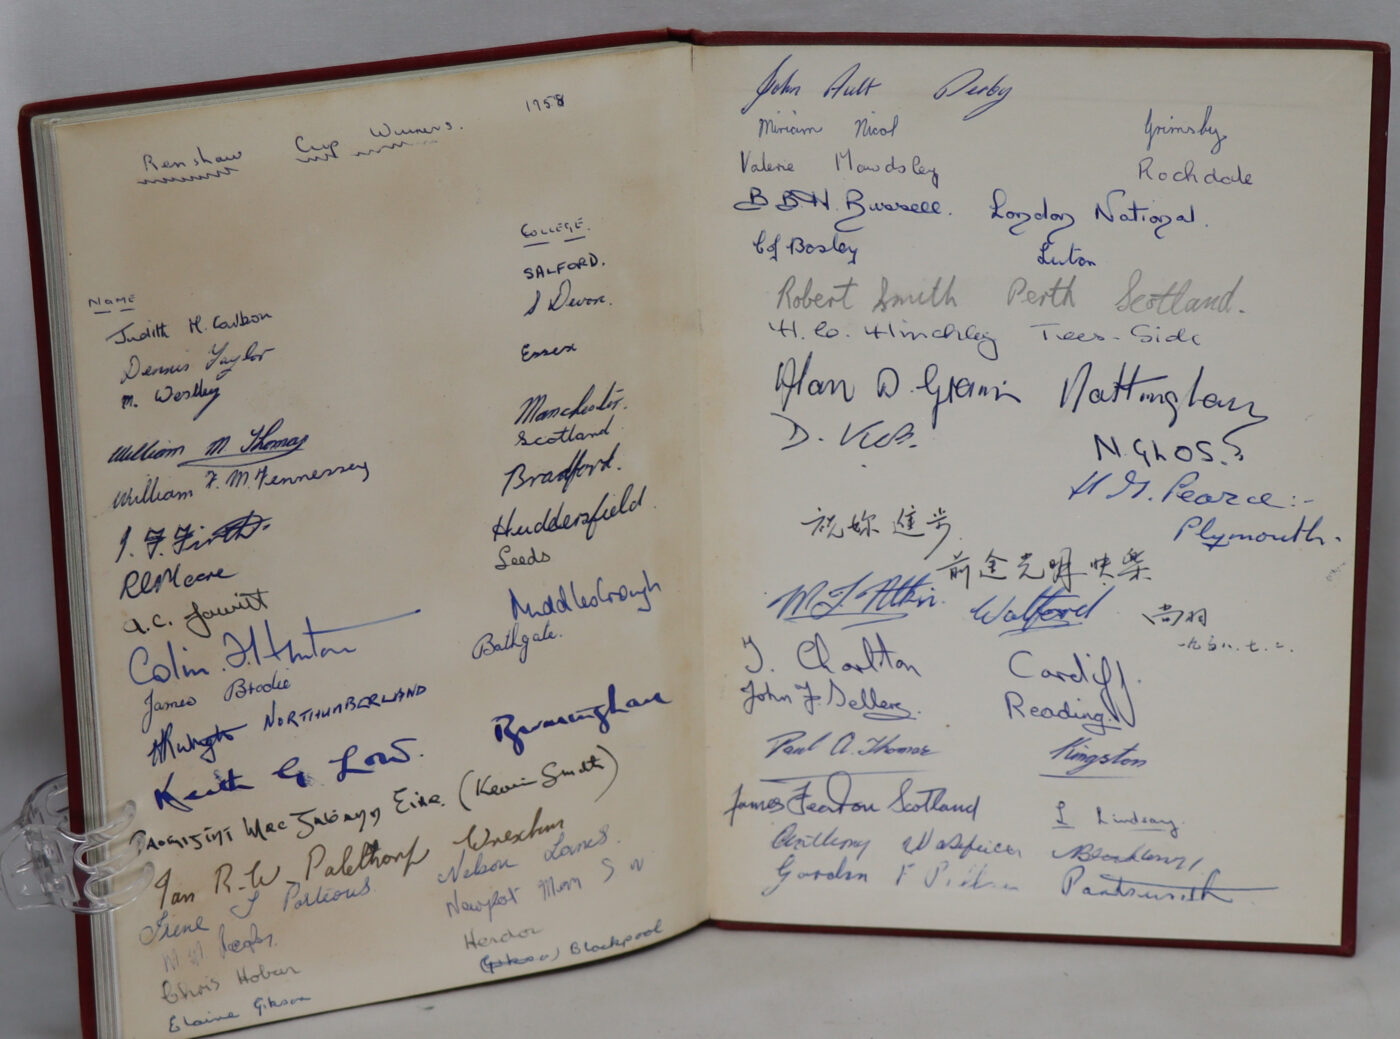 Renshaw Cup Winners. 1958
NAME COLLEGE.
Judith M. SALFORD.
Dennis Taylor S Devon.
M. Westley Essex
William M Thomas Manchester.
William F. M. Fennessey Scotland
J. F. Firth Bradford.
Huddersfield.
A.C. Jowitt Leeds
Colin Middlesbrough
James Brodie Bathgate.
NORTHUMBERLAND
Keith G Low. Birmingham
Eire. (Kevin Smith)
Ian R. W. Palethorp Wrexham
Irene J Porteous Nelson Lancs.
M. W. Newport Mon
Chris Hoban Hendon
Elaine Gibson Blackpool
John Ault Derby
Miriam Nicol Grimsby
Valerie Mawdsley Rochdale
Russell. London National.
Bosley Luton
Robert Smith Perth Scotland.
H. Co. Hinchley Tees-Side
Alan D. Nottingham
D.
N. GhOS
H G. Pearce:-
Plymouth.
祝妳進步
前途光明快樂
M J Atkin. Watford
尚羽
一九五八.七.二.
J. Charlton Cardiff.
John F. Sellers Reading
Paul A. Thomas Kingston
James Fearon Scotland L Lindsay
Anthony Blackburn
Gordon F